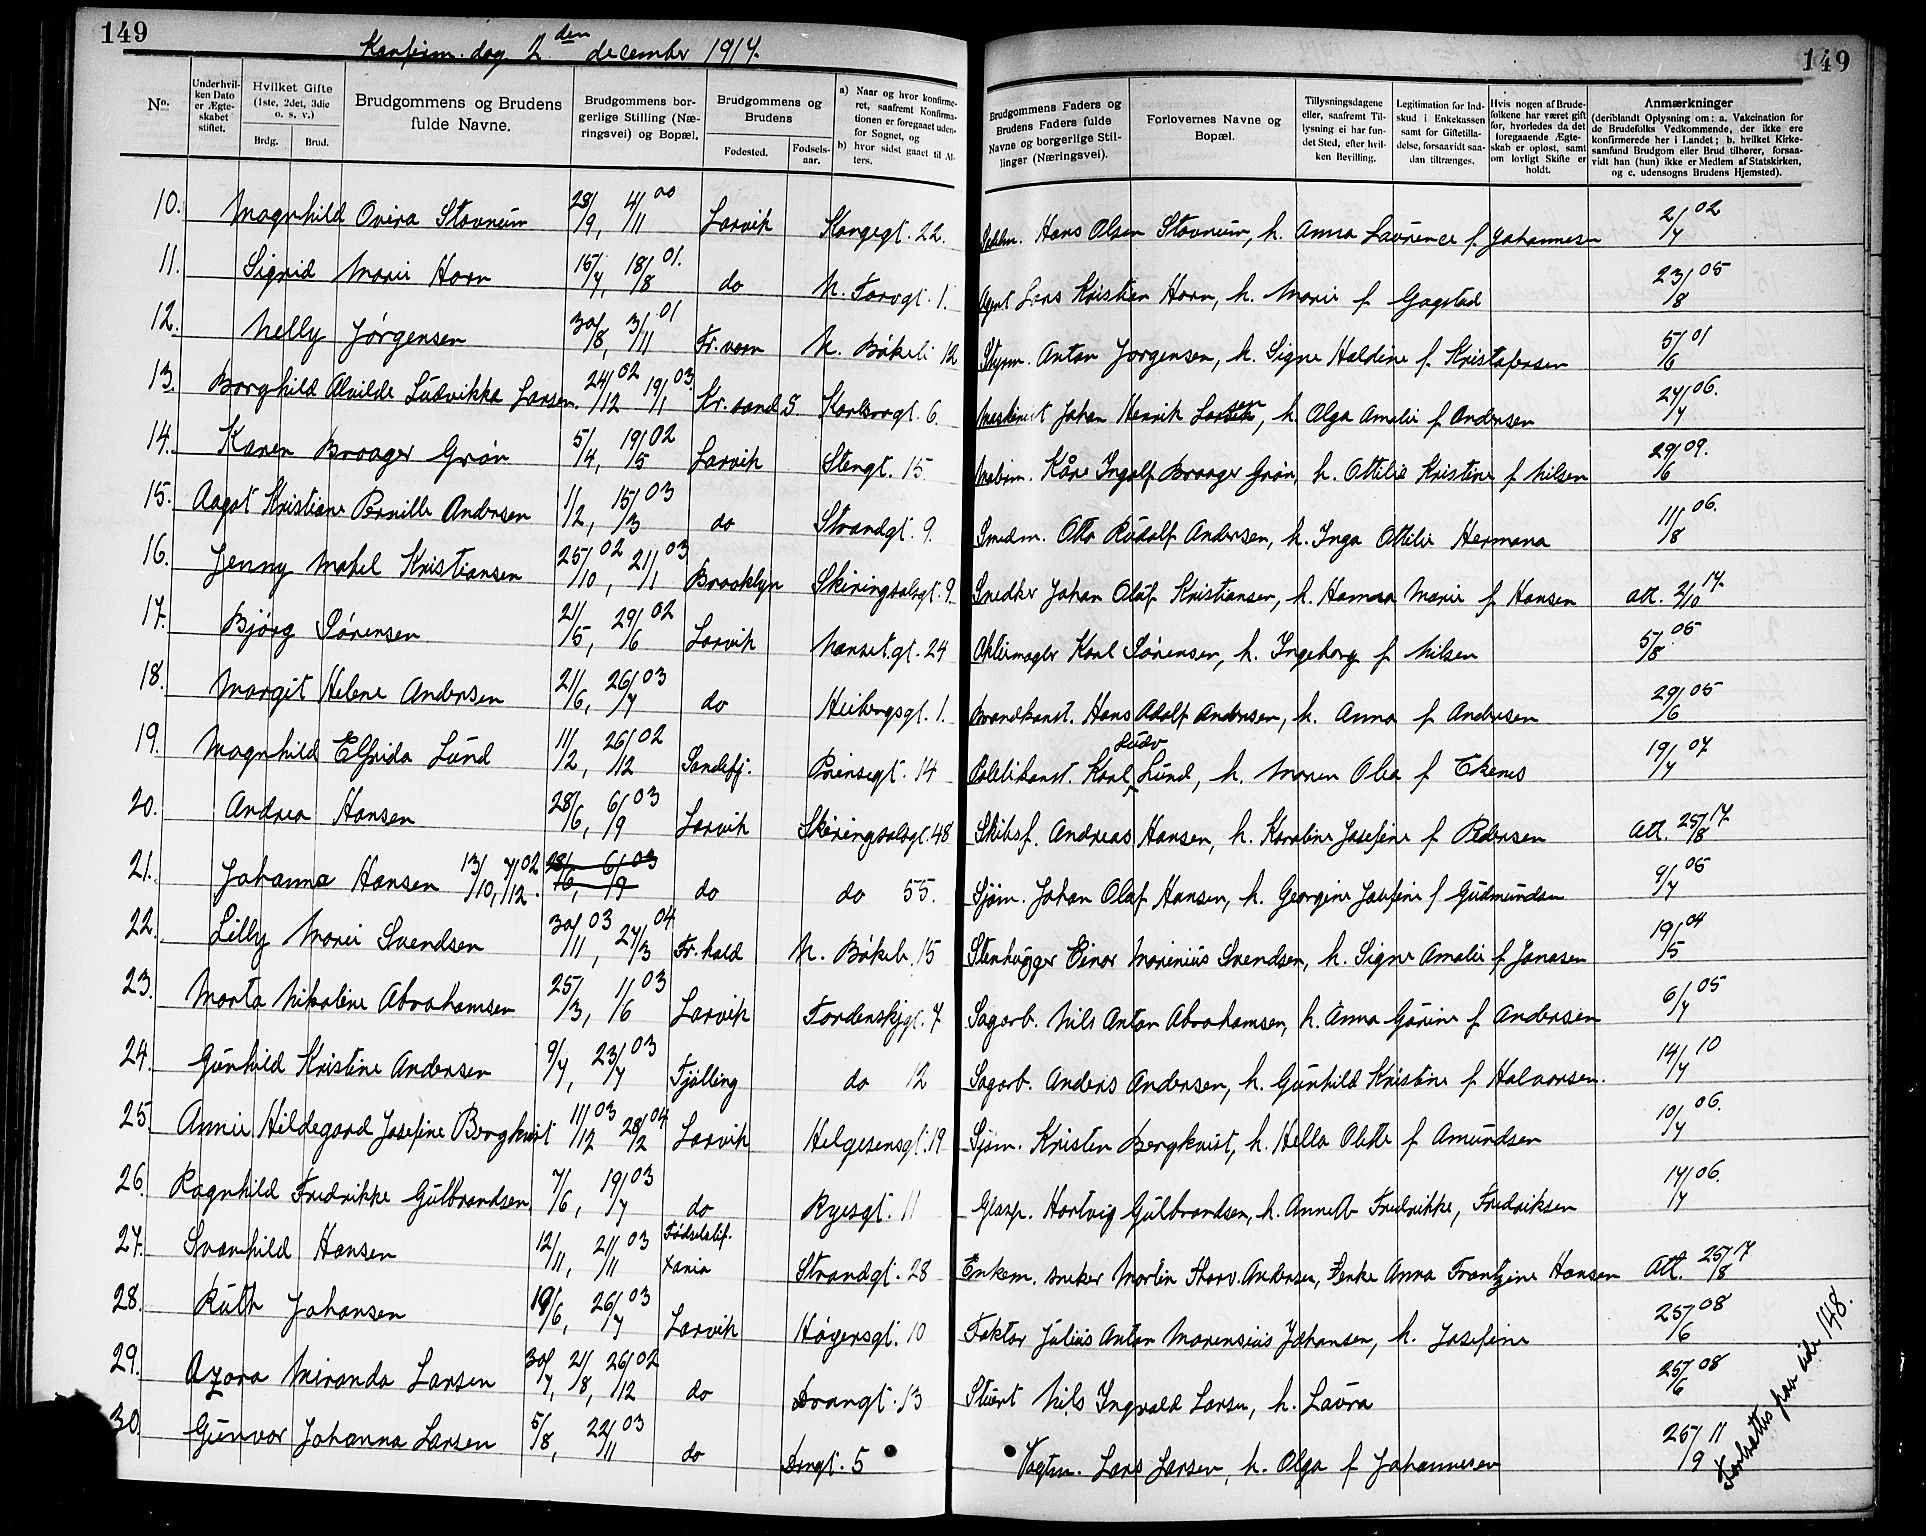 149
Konfirm. dag 2den december 1917.
149
No.
Under hvil-
ken Dato
er Ægte-
skabet
stiftet.
Hvilket Gifte
(1ste, 2det, 3die
o. s. v.)
Brdg.
Brud.
Brudgommens og Brudens
fulde Navne.
Brudgommens bor-
gerlige Stilling (Næ-
ringsvei) og Bopæl.
Brudgommens og
Brudens
Fødested.
Fødsels-
aar.
a) Naar og hvor konfirme-
ret, saafremt Konfirma-
tionen er foregaaet uden-
for Sognet, og
b) hvor sidst gaaet til Al-
ters.
Brudgommens Faders og
Brudens Faders fulde
Navne og borgerlige Stil-
linger (Næringsvei).
Forlovernes Navne og
Bopæl.
Tillysningsdagene
eller, saafremt Til-
lysning ei har fun-
det Sted, efter hvil-
ken Bevilling.
Legitimation for Ind-
skud i Enkekassen
samt for Giftetilla-
delse, forsaavidt saa-
dan tiltrænges.
Hvis nogen af Brude-
folkene har været gift
før, hvorledes da det
foregaaende Ægte-
skab er opløst, samt
om lovligt Skifte er
holdt.
Anmærkninger
(deriblandt Oplysning om: a. Vakcination for
de Brudefolks Vedkommende, der ikke ere
konfirmerede her i Landet; b. hvilket Kirke-
samfund Brudgom eller Brud tilhører, forsaa-
vidt han (hun) ikke er Medlem af Statskirken,
og c. udensogns Brudens Hjemsted).
10. Magnhild Ovira Stavnum 28/9, 4/11 00 Larvik Kongegt. 22. Hans Olsen Stavnum, h. Anna Laurence f Johannesen 2/7 02
11. Sigrid Marie Horn 15/7, 18/8 01. do N. Torvgt. 1. Agent Lars Kristian Horn, h. Marie f Gogstad 23/8 05
12. Nelly Jørgensen 30/8, 3/11 01 Fr. vern N. Bökeli 12 Styrm. Anton Jørgensen, h. Signe Haldine f. Kristofersen 5/6 01
13. Borghild Alvilde Ludvikka Larsen. 24/12 02 19/1 03. Kr. sand S. Karlsrogt. 6. Maskinist Johan Henrik Larsen, h. Olga Amalie f Andersen 27/7 06.
14. Karen Braager Grøn 5/4, 19/5 02 Larvik Stengt. 15. Kåre Ingolf Braager Grøn, h. Ottilie Kristine f Nilsen 29/6 09.
15. Aagot Kristiane Pernille Andersen 1/2, 15/3 03 do Strandgt. 9. Smedm. Otto Rudolf Andersen, h. Inga Ottilie Hermana 11/8 06.
16. Jenny Mabel Kristiansen 25/10 02, 21/1 03 Brooklyn Skiringsalsgt. 9. Snedker Johan Oluf Kristiansen, h. Hanna Marie f Hansen att. 2/10 17.
17. Bjørg Sørensen 21/5, 29/6 02 Larvik Nanset.gt. 24 Karl Sørensen, h. Ingeborg f Nilsen 5/8 05
18. Margit Helene Andersen 21/6, 26/7 03 do Heibergsgt. 1. Brandkonst. Hans Adolf Andersen, h. Anna f Andersen 29/6 05
19. Magnhild Elfrida Lund 11/2, 26/12 02 Sandefj. Prinsegt. 14 Politikonst. Karl Ludv Lund, h. Maren Olea f Ekenes 19/7 07
20. Andrea Hansen 28/6, 6/9 03 Larvik Skiringsalsgt. 48 Skibsf. Andreas Hansen, h. Karoline Josefine f Pedersen Att. 25/8 17.
21. Johanna Hansen 13/10, 7/12. 02 28/6, 6/9 03 do do 55. Sjøm. Johan Olaf Hansen, h. Georgine Josefine f Gudmundsen 9/7 05
22. Lilly Marie Svendsen 30/11 03, 27/3 04 Fr. hald N. Bökeli 15 Stenhugger Einar Marinius Svendsen, h. Signe Amalie f Jonasen 19/5 04
23. Marta Nikoline Abrahamsen 25/3, 11/6 03 Larvik Tordenskjgt. 7 Sagarb. Nils Anton Abrahamsen, h. Anna Gurine f Andersen 6/7 05
24. Gunhild Kristine Andersen 9/7, 23/7 03 Tjølling do 12 Sagarb. Anders Andersen, h. Gunhild Kristine f Halvorsen. 14/7 10
25. Annie Hildegard Josefine Bergkvist 11/12 03 28/2 04 Larvik Helgesensgt. 19 Sjøm. Kristen Bergkvist, h. Hella Olette f Amundsen 10/7 06.
26. Ragnhild Fredrikke Gulbrandsen 7/6, 19/7 03 do Ryesgt. 11 Glasp. Hartvig Gulbrandsen, h. Annette Fredrikke, Fredriksen 17/7 06.
27. Svanhild Hansen 12/11, 21/11 03 Fødselstif. Xania Strandgt. 28 Enkem. sneker Martin Thorv. Andersen, Fenke Anna Frantzine Hansen Att. 25/8 17
28. Ruth Johansen 19/6, 26/7 03 Larvik Høyersgt. 10 Faktor Julius Anton Marensius Johansen, h. Josefine 25/6 08
29. Azora Miranda Larsen 30/7, 21/8, 26/12 02 do Drangt. 13 Stuert Nils Ingvald Larsen, h. Laura 25/6 08
30 Gunvor Johanna Larsen 5/8, 22/11 03 do Drngt. 5 Vogtm. Lars Larsen, h. Olga f Johannesen 25/9 11
Fortsættes paa side 148.